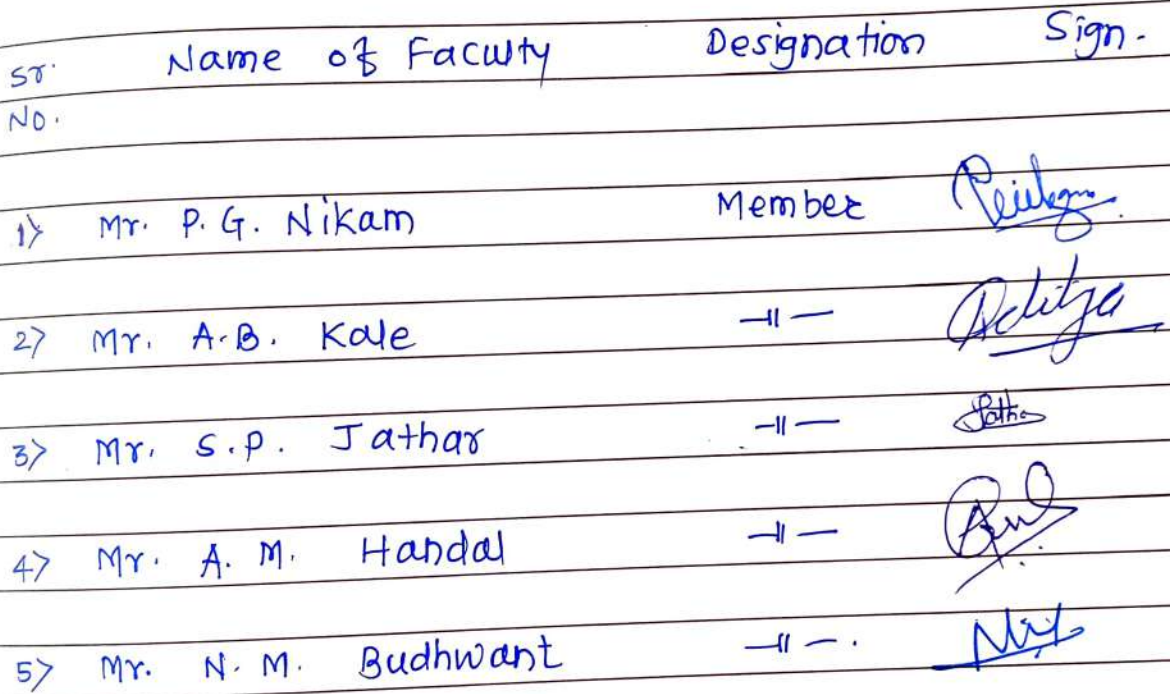 Sr. Name of Faculty Designation Sign.
No.
1> Mr. P. G. Nikam Member
2> Mr. A.B. Kale –||– Aditya
3> Mr. S.P. Jathar –||–
4> Mr. A. M. Handal –||–
5> Mr. N. M. Budhwant –||–.